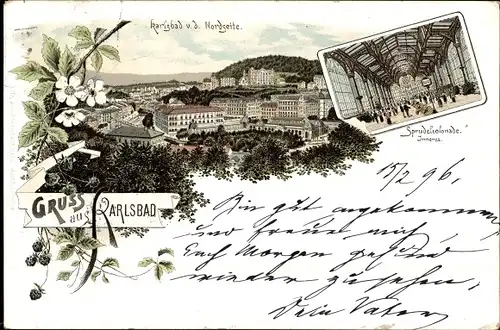 Karlsbad v. d. Nordseite.
"Sprudelcolonade."
Inneres.
GRUSS
aus
KARLSBAD
15/2 96.
Bin gut angekommen
und freue mich,
Euch Morgen gesund
wieder zu sehen,
Dein Vater